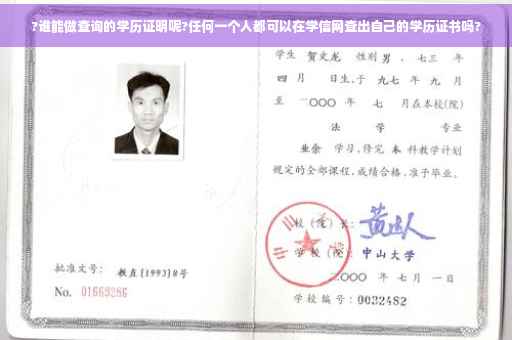 ?谁能做查询的学历证明呢?任何一个人都可以在学信网查出自己的学历证书吗?
学生 贺文龙 性别 男 、七三 年
四 月 日生,于 九七 年 九 月
至 二〇〇〇 年 七 月在本校(院)
法 学 专业
业余 学习,修完 本 科教学计划
规定的全部课程,成绩合格,准予毕业。
校(院)长:
学 校(院): 中山大学
二〇〇〇 年 七 月 一 日
学校编号:0032482
批准文号: 教直[1993]8号
No. 01669286